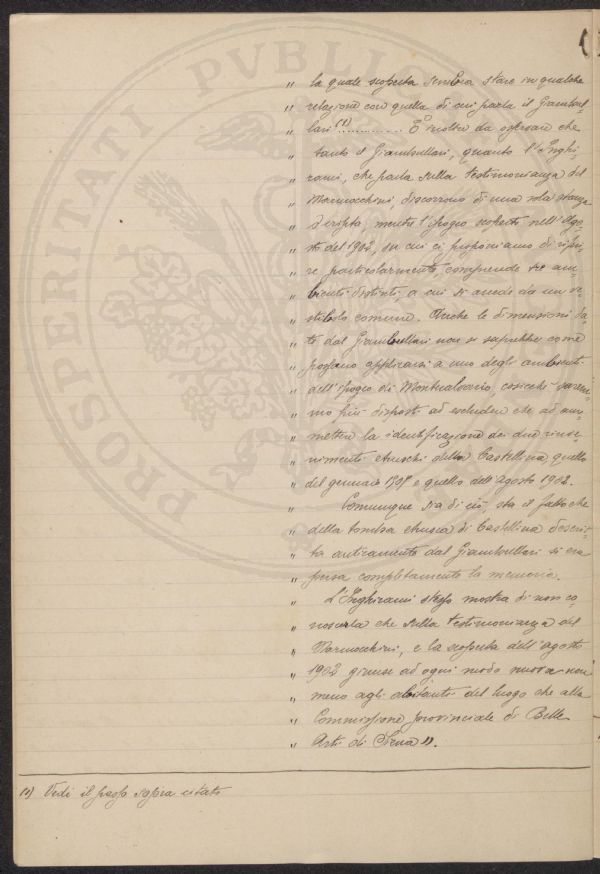 " la quale scoperta sembra stare in qualche
" relazione con quella di cui parla il Giambul-
" lari (1)............ È inoltre da osservare che
" tanto il Giambullari, quanto l'Inghi-
" rami, che parla sulla testimonianza del
" Marmocchini, discorrono di una sola stanza
" o cripta, mentre l'ipogeo scoperto nell'ago-
" sto del 1902, su cui ci proponiamo di riferi-
" re particolarmente, comprende tre am-
" bienti distinti, a cui si accede da un ve-
" stibolo comune. Anche le dimensioni da-
" te dal Giambullari non si saprebbe come
" possano applicarsi a uno degli ambienti
" dell'ipogeo di Montecalvario, cosicchè sarem-
" mo più disposti ad escludere che ad am-
" mettere la identificazione dei due rinve-
" nimenti etruschi della Castellina, quello
" del gennaio 1507 e quello dell'agosto 1902.
" Comunque sia di ciò, sta il fatto che
" della tomba etrusca di Castellina descrit-
" ta anticamente dal Giambullari si era
" persa completamente la memoria.
" L'Inghirami stesso mostra di non co-
" noscerla che sulla testimonianza del
" Marmocchini, e la scoperta dell'agosto
" 1902 giunse ad ogni modo nuova non
" meno agli abitanti del luogo che alla
" Commissione provinciale di Belle
" Arti di Siena ".
(1) Vedi il passo sopra citato
PROSPERITATI PVBLICAE